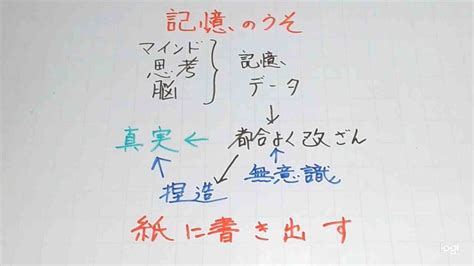 記憶、のうそ
マインド
思考
脳
記憶、
データ
真実 ← 都合よく改ざん
捏造
無意識
紙に書き出す